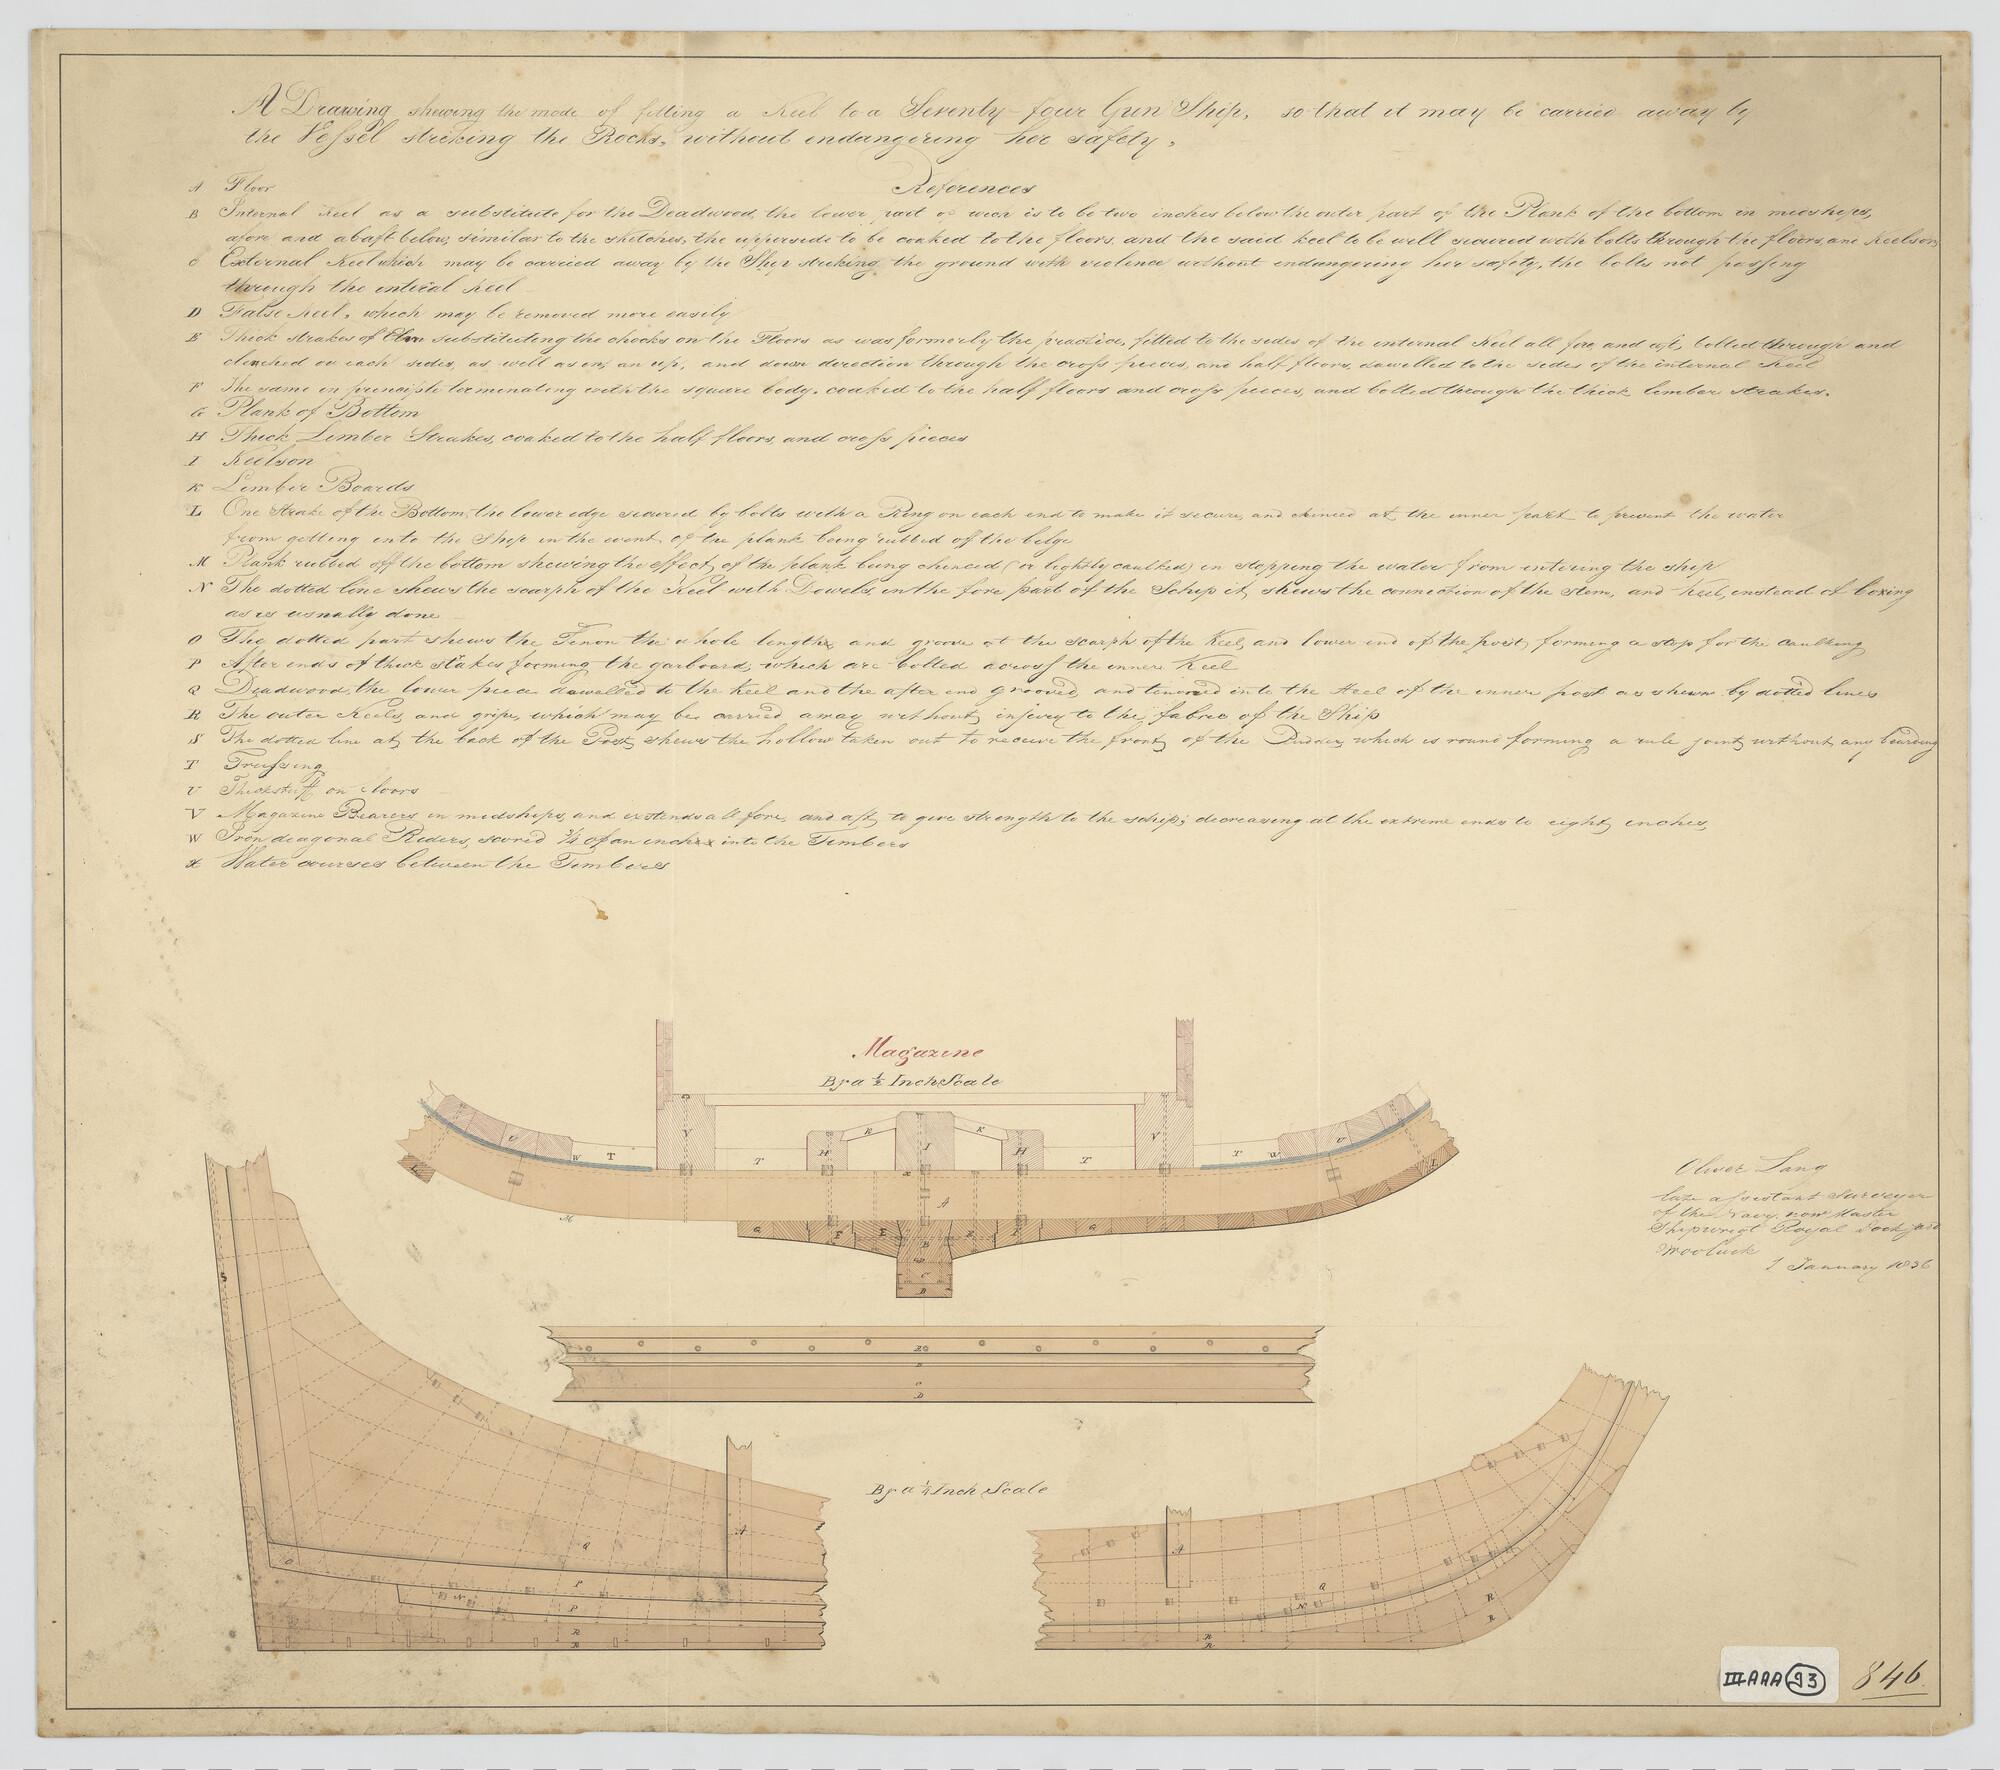 A Drawing shewing the mode of fitting a Keel to a Seventy-four Gun Ship, so that it may be carried away by
the Vessel stricking the Rocks, without endangering her safety,
References
A Floor
B Internal Keel as a substitute for the Deadwood, the lower part of wich is to be two inches below the outer part of the Plank of the bottom in midships,
afore and abaft below, similar to the sketches, the upperside to be coaked to the floors, and the said keel to be well secured with bolts through the floors, and Keelson
C External Keel which may be carried away by the Ship stricking the ground with violence without endangering her safety, the bolts not passing
through the interal Keel
D False Keel, which may be removed more easily
E Thick strakes of Elm substituting the chocks on the Floors as was formerly the practice, fitted to the sides of the internal Keel all fore and aft, bolted through and
clenched on each sides, as well as on, an up, and down direction through the cross pieces, and half floors, dowelled to the sides of the internal Keel
F The same in principle terminating with the square body, coaked to the half floors and cross pieces, and bolted through the thick limber strakes.
G Plank of Bottom
H Thick Limber Strakes, coaked to the half floors, and cross pieces
I Keelson
K Limber Boards
L One Strake of the Bottom, the lower edge secured by bolts with a Ring on each end to make it secure, and chinced at the inner part to prevent the water
from getting into the Ship in the event of the plank being rubbed off the bilge
M Plank rubbed off the bottom shewing the effect of the plank being chinced (or lightly caulked) in stopping the water from entering the ship
N The dotted line shews the scarph of the Keel with Dowels, in the fore part of the Schip it shews the connection of the stem, and Keel, instead of boxing
as is usually done
O The dotted part shews the Tenon the whole length, and groove at the scarph of the Keel, and lower end of the post, forming a stop for the caulking
P After ends of thick stakes forming the garboard, which are bolted across the inner Keel
Q Deadwood, the lower piece dowelled to the Keel and the after end grooved and tenoned into the Heel of the inner post as shewn by dotted lines
R The outer Keels, and gripe, which may be carried away without injury to the fabric of the Ship
S The dotted line at the back of the Post shews the hollow taken out to receive the front of the Rudder, which is round forming a rule joint without any bearding
T Trussing
U Thickstuff on floors
V Magazine Bearers in midships, and extends all fore, and aft, to give strength to the schip; decreasing at the extreme ends to eight inches,
W Iron diagonal Riders, scored 3/4 of an inch into the Timbers
X Water courses between the Timbers
Magazine
By a ½ Inch Scale
U
W
T
V
T
H
K
I
K
H
T
V
T
W
U
L
A
M
G
F
E
B
E
F
G
C
D
Oliver Lang
late assistant Surveyer
of the Navy, now Master
Shipwrigt Royal Dockyard
Woolwick
1 January 1836
S
D
By a ¼ Inch Scale
A
Q
O
P
N
P
R
R
A
Q
N
R
R
R
R
IIIAAA 93
846